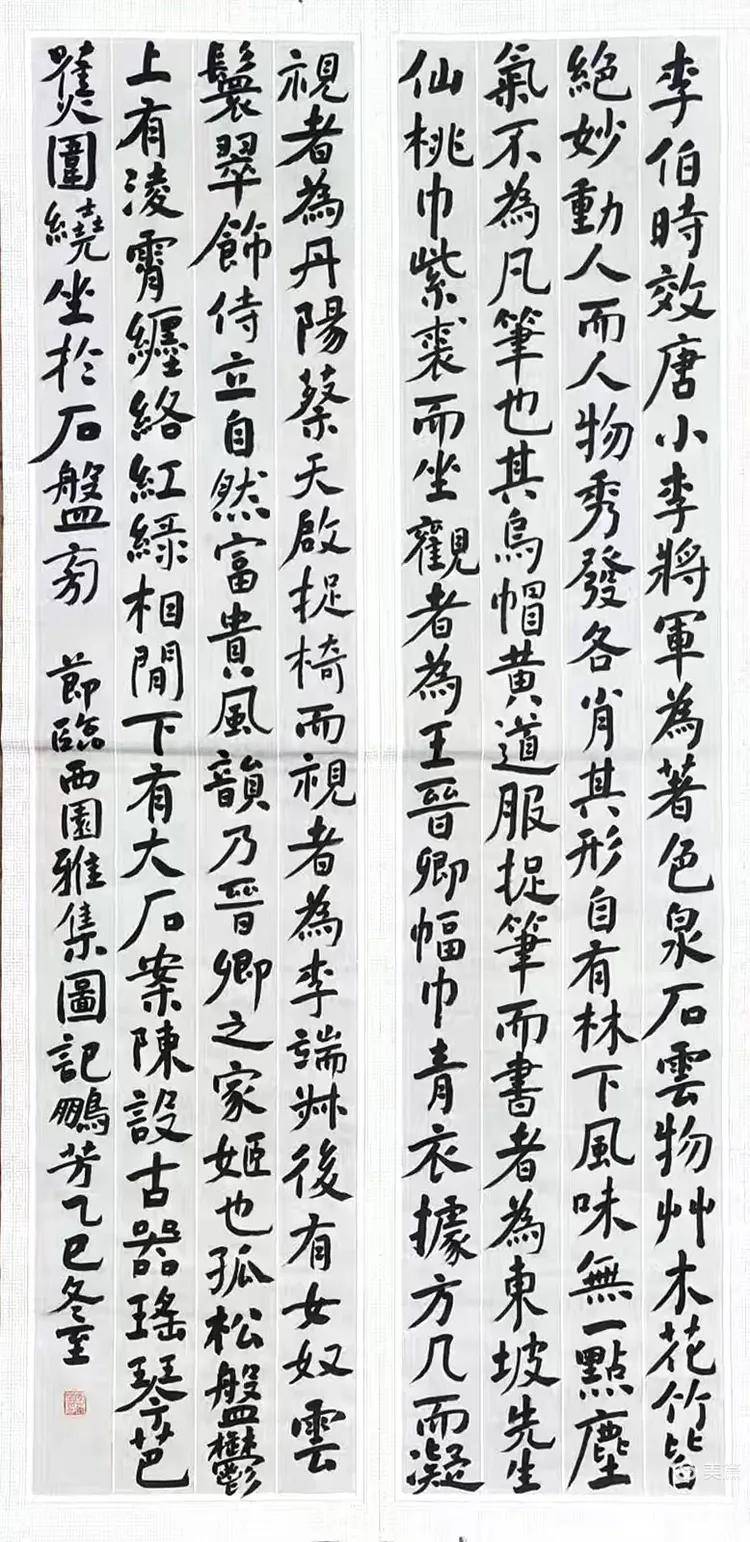 李伯時效唐小李將軍為著色泉石雲物艸木花竹皆
絕妙動人而人物秀發各肖其形自有林下風味無一點塵
氣不為凡筆也其烏帽黃道服捉筆而書者為東坡先生
仙桃巾紫裘而坐觀者為王晉卿幅巾青衣據方几而凝
視者為丹陽蔡天啟捉椅而視者為李端叔後有女奴雲
鬟翠飾侍立自然富貴風韻乃晉卿之家姬也孤松盤鬱
上有淩霄纏絡紅綠相間下有大石案陳設古器瑤琴芭
蕉圍繞坐於石盤旁 節臨西園雅集圖記鵬芳乙巳冬至
美篇